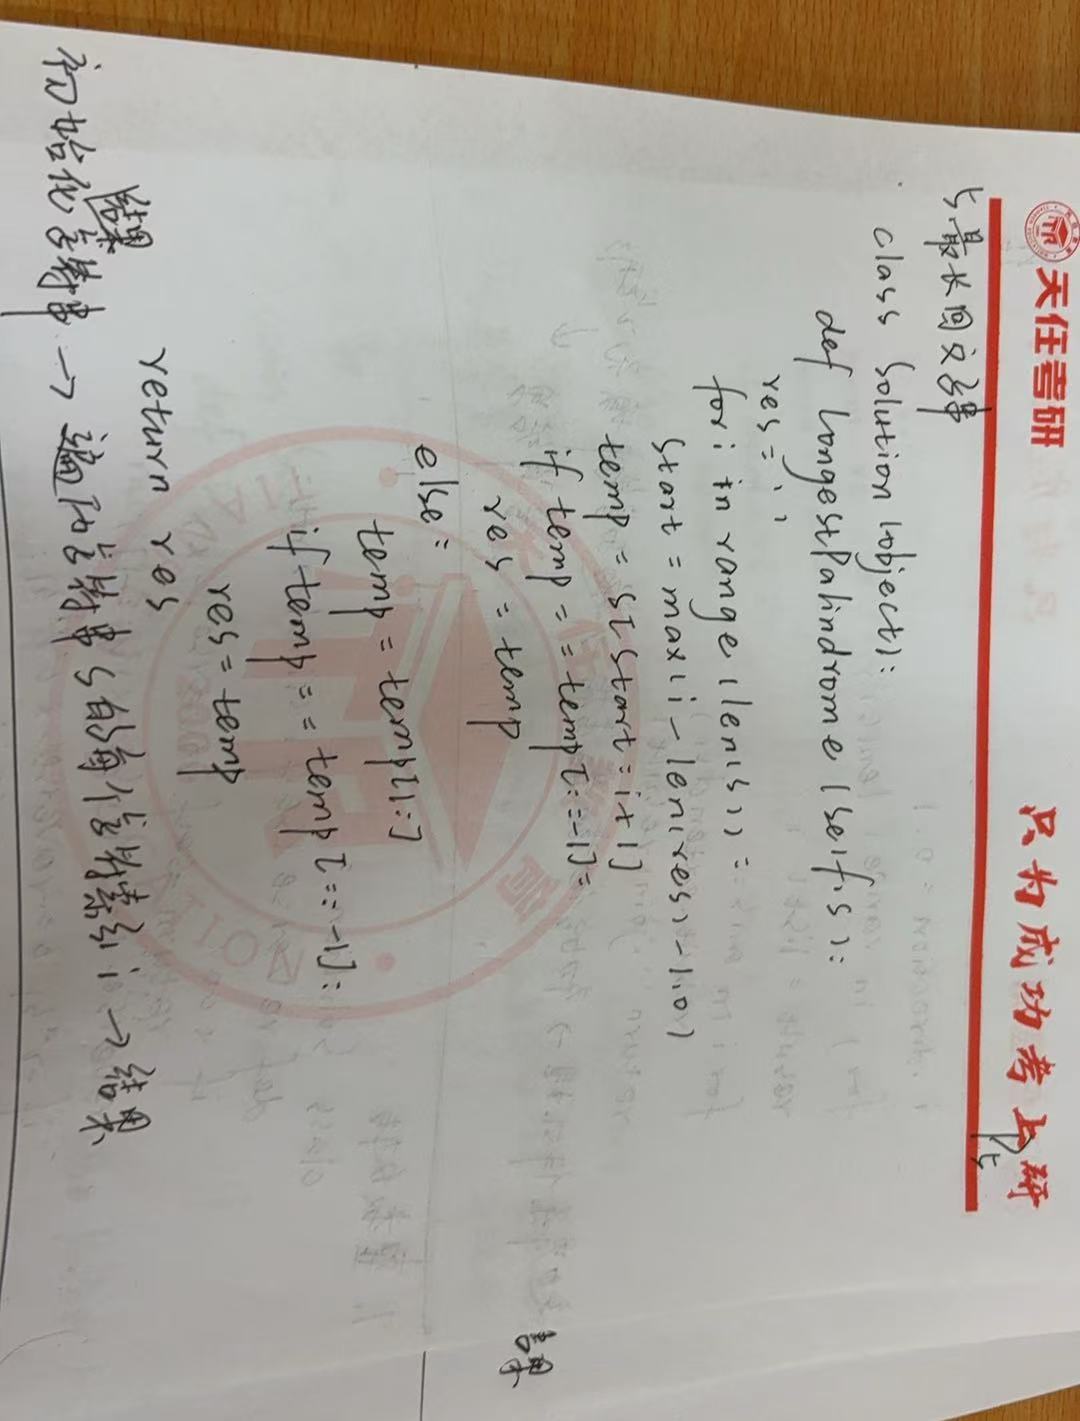 天任考研
只为成功考上研
P5
5.最长回文子串
class Solution (object):
def longestPalindrome (self,s):
res = ''
for i in range (len(s)):
start = max (i - len(res) -1,0)
temp = s[start:i+1]
if temp == temp[::-1]:
res = temp
else:
temp = temp[1:]
if temp == temp[::-1]:
res = temp
return res
结果
初始化字符串 → 遍历字符串s的每个字符索引i → 结果